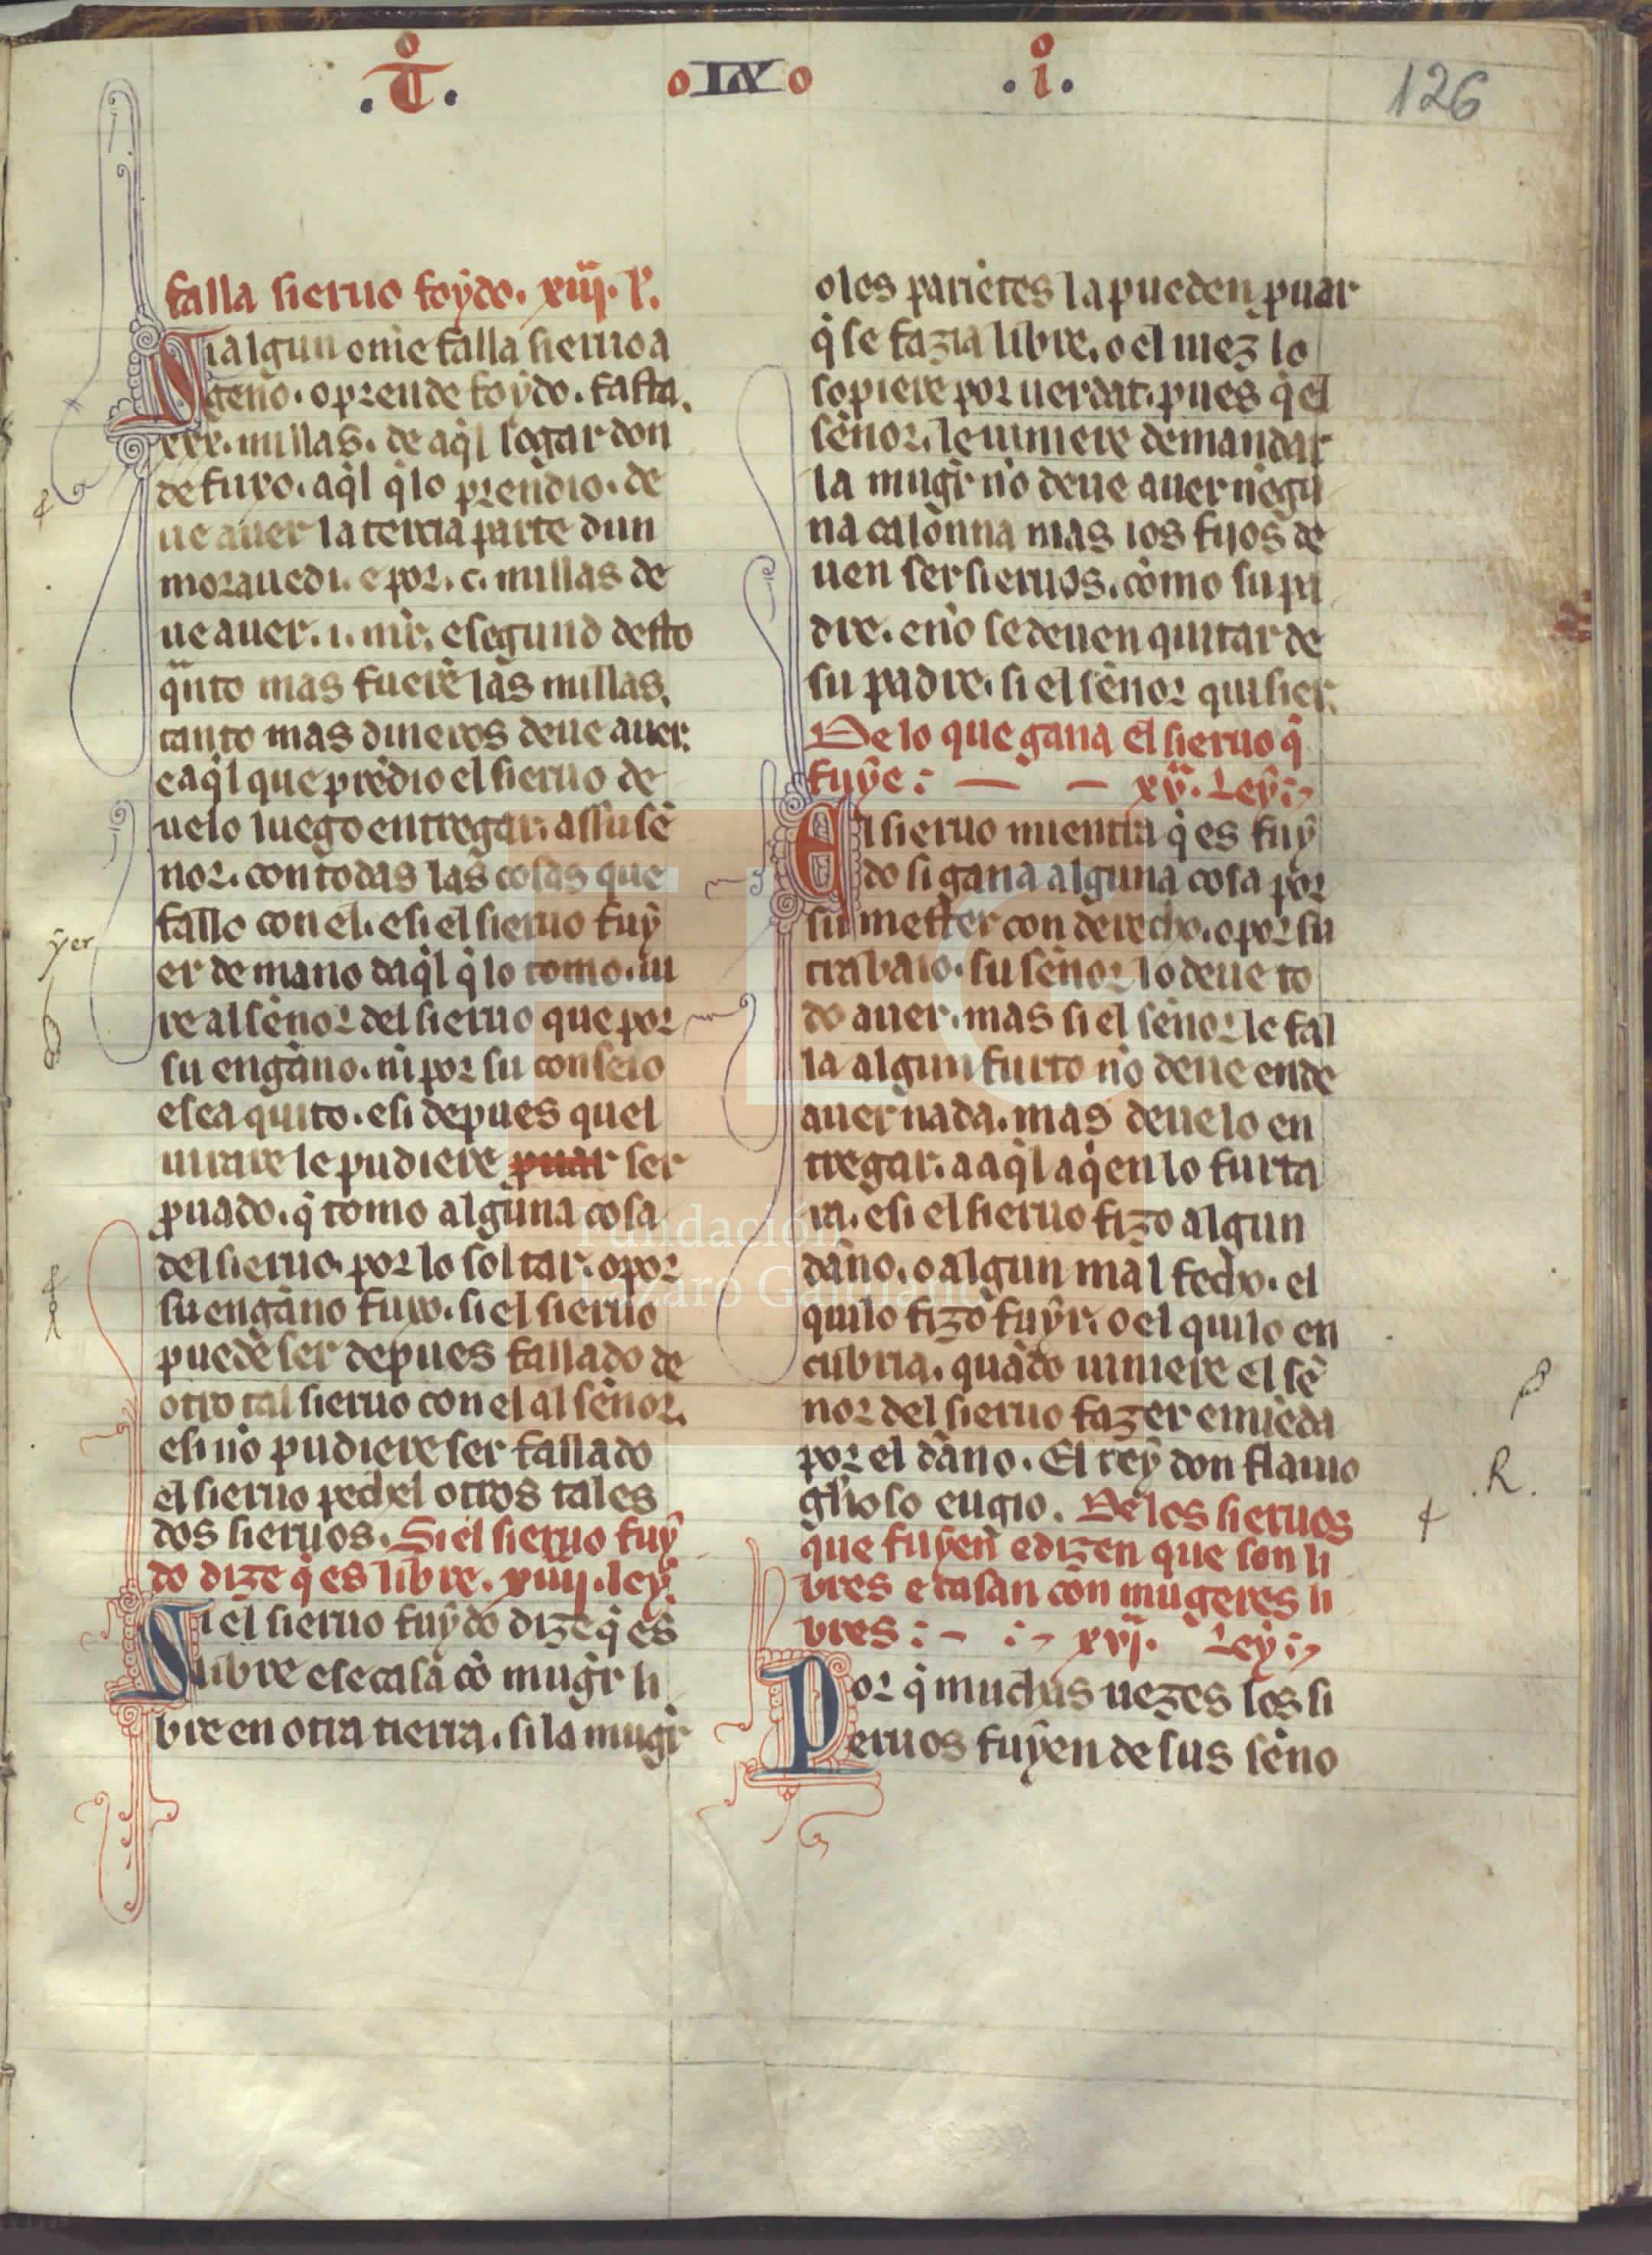 .T. IX .i.
126
falla sieruo foydo. xiij. l'.
Si algun om̃e falla sieruo a
geno. o prende foydo. fasta.
xxx. millas. de aq̃l logar don
de fuxo. aq̃l q̃ lo prendio. de
ue auer la tercia parte dun
morauedi. e por. c. millas de
ue auer. i. mr̃. e segund desto
q̃nto mas fuerẽ las millas.
tanto mas dineros deue auer.
e aq̃l que prẽdio el sieruo de
uelo luego entregar. assu sẽ
nor. con todas las cosas que
fallo con el. e si el sieruo fuy
er de mano daq̃l q̃ lo tomo. iu
re al sẽnor del sieruo que por
su engãno. ni por su conseio
e sea quito. e si depues quel
iurare le pudiere puar ser
puado. q̃ tomo alguna cosa
del sieruo. por lo soltar. o por
su engãno fuxo. si el sieruo
puede ser depues fallado de
otro tal sieruo con el al sẽnor.
e si nõ pudiere ser fallado
el sieruo pechel otros tales
dos sieruos. Si el sieruo fuy
do dize q̃ es libre. xiiij. ley.
Si el sieruo fuydo dize q̃ es
libre e se casa cõ mugr̃ li
bre en otra tierra. si la mugr̃
yer
o les pariẽtes la pueden puar
q̃ se fazia libre. o el iuez lo
sopiere por uerdat. pues q̃ el
sẽnor. le uiniere demandar
la mugr̃ nõ deue auer nẽgu
na calonna mas los fijos de
uen ser sieruos. como su pa
dre. e nõ se deuen quitar de
su padre. si el sẽnor quisier.
De lo que gana el sieruo q̃
fuye : — — xv. Ley :
El sieruo mientra q̃ es fuy
do si gana alguna cosa por
su mester con derecho. o por su
trabaio. su sẽnor lo deue to
do auer. mas si el sẽnor le fal
la algun furto nõ deue ende
auer nada. mas deuelo en
tregar. a aq̃l a q̃en lo furta
ra. e si el sieruo fizo algun
dãno. o algun mal fecho. el
qui lo fizo fuyr. o el qui lo en
cubria. quãdo uiniere el sẽ
nor del sieruo fazer emiẽda
por el dãno. El rey don flauio
gl'ioso eugio. De los sieruos
que fuyen e dizen que son li
bres e casan con mugeres li
bres : - : xvj. Ley :
Por q̃ muchas uezes los si
eruos fuyen de sus sẽno
.R.
Fundación
Lázaro Galdiano
FLG